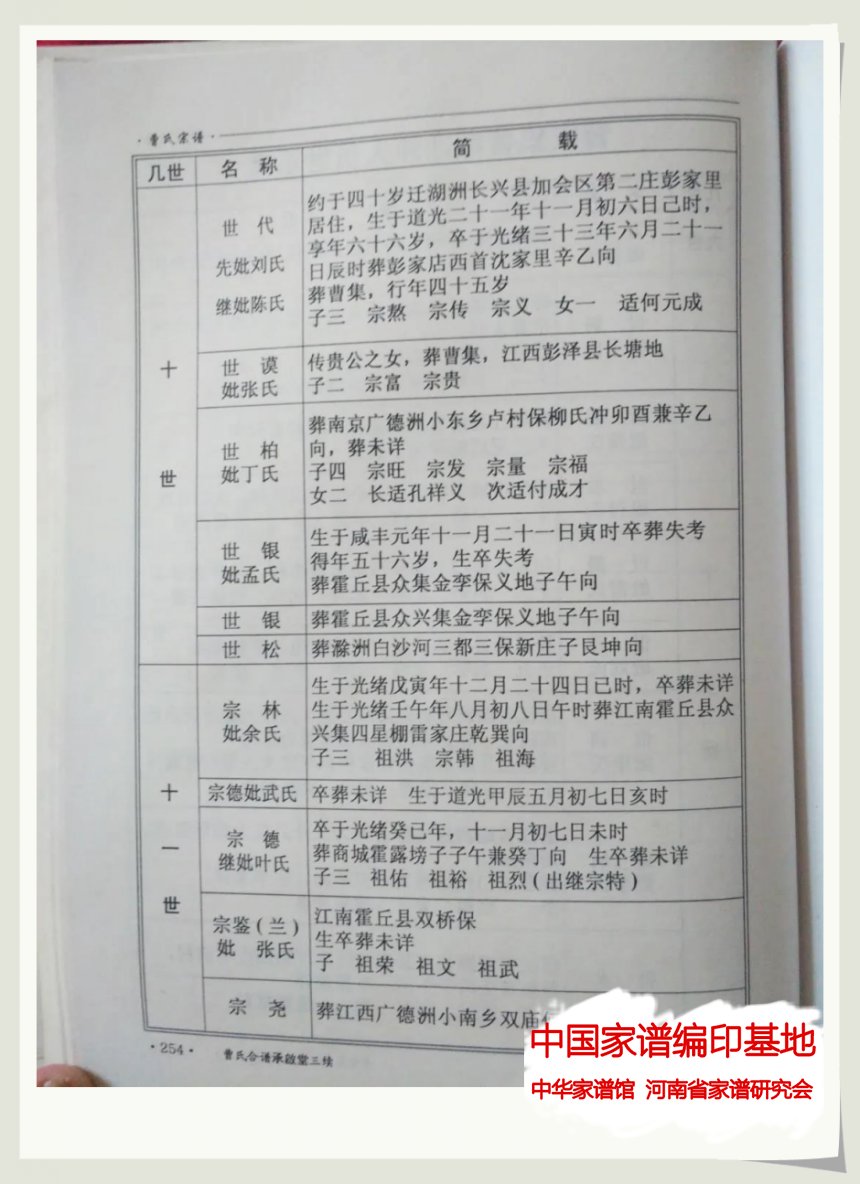 ·曹氏宗谱·
几世 名 称 简 载
世 代
先妣刘氏
继妣陈氏
约于四十岁迁湖洲长兴县加会区第二庄彭家里
居住，生于道光二十一年十一月初六日己时，
享年六十六岁，卒于光绪三十三年六月二十一
日辰时葬彭家店西首沈家里辛乙向
葬曹集，行年四十五岁
子三 宗熬 宗传 宗义 女一 适何元成
十
世
世 谟
妣张氏
传贵公之女，葬曹集，江西彭泽县长塘地
子二 宗富 宗贵
世 柏
妣丁氏
葬南京广德洲小东乡卢村保柳氏冲卯酉兼辛乙
向，葬未详
子四 宗旺 宗发 宗量 宗福
女二 长适孔祥义 次适付成才
世 银
妣孟氏
生于咸丰元年十一月二十一日寅时卒葬失考
得年五十六岁，生卒失考
葬霍丘县众集金孪保义地子午向
世 银
葬霍丘县众兴集金孪保义地子午向
世 松
葬滁洲白沙河三都三保新庄子艮坤向
十
一
世
宗 林
妣余氏
生于光绪戊寅年十二月二十四日己时，卒葬未详
生于光绪壬午年八月初八日午时葬江南霍丘县众
兴集四星棚雷家庄乾巽向
子三 祖洪 宗韩 祖海
宗德妣武氏
卒葬未详 生于道光甲辰五月初七日亥时
宗 德
继妣叶氏
卒于光绪癸已年，十一月初七日未时
葬商城霍露塝子子午兼癸丁向 生卒葬未详
子三 祖佑 祖裕 祖烈(出继宗特)
宗鉴(兰)
妣 张氏
江南霍丘县双桥保
生卒葬未详
子 祖荣 祖文 祖武
宗 尧
葬江西广德洲小南乡双庙
·254· 曹氏合谱承啟堂三续
中国家谱编印基地
中华家谱馆 河南省家谱研究会